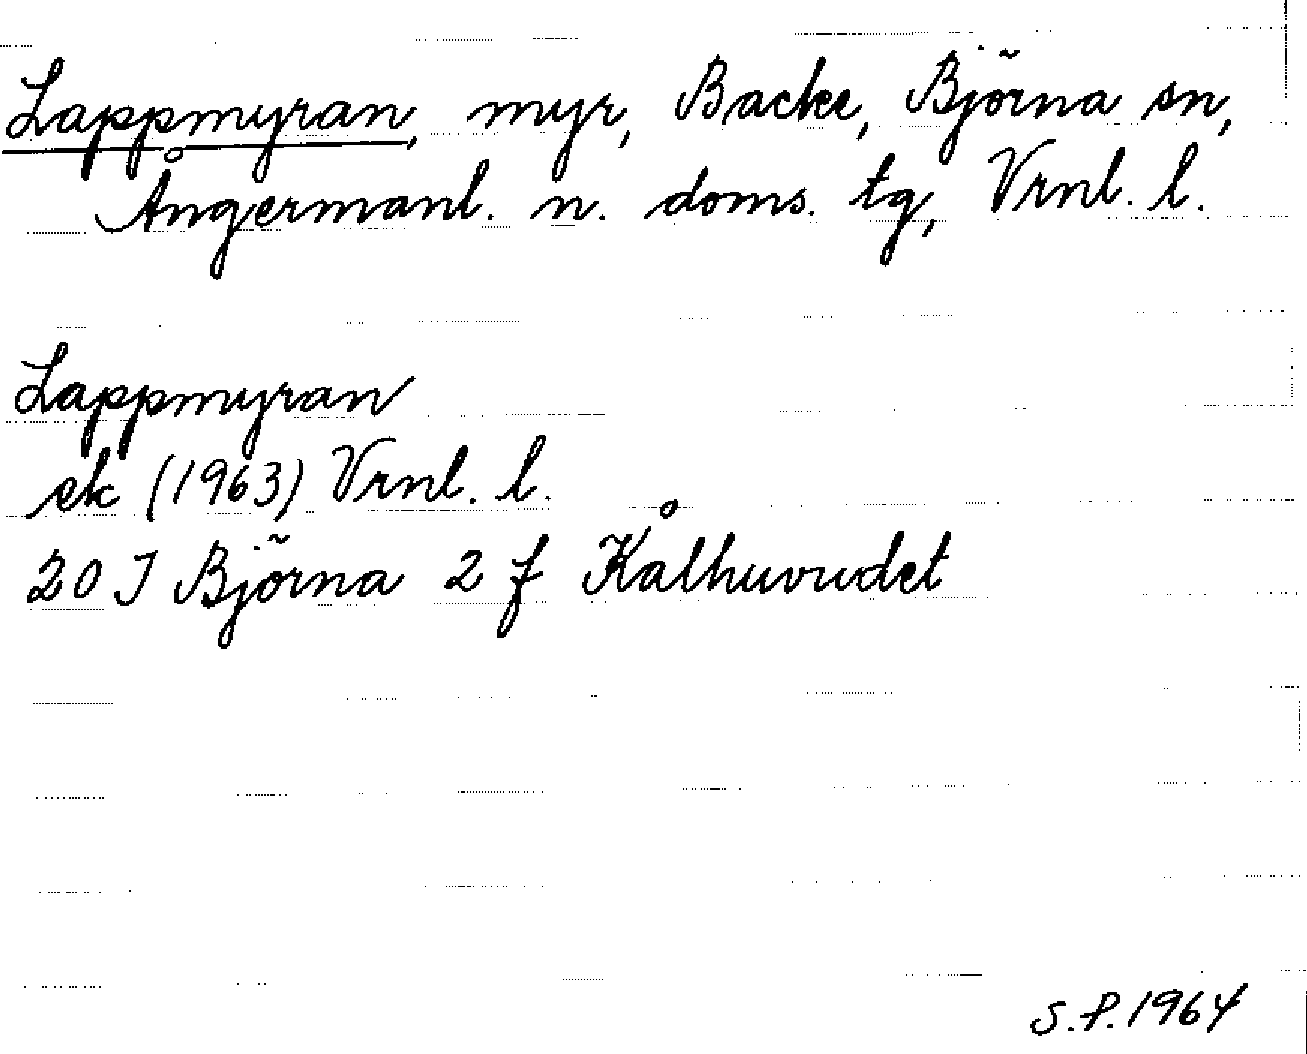 Lappmyran, myr, Backe, Björna sn,
Ångermanl. n. doms. tg, Vrnl. l.
Lappmyran
ek (1963) Vrnl. l.
20 I Björna 2 f Kålhuvudet
S.P. 1964